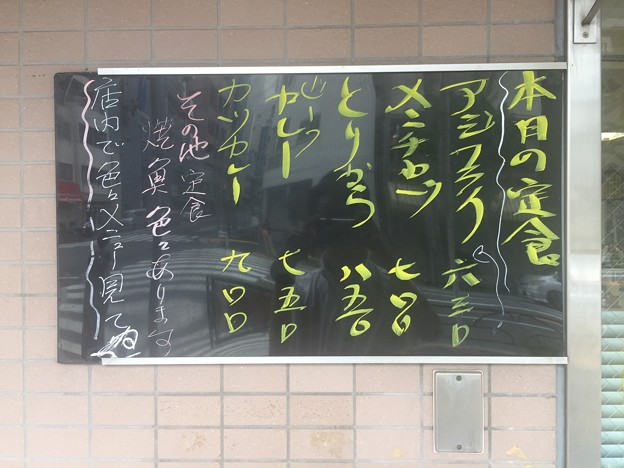 本日の定食
アジフライ 六三〇
メンチカツ 七〇〇
とりから 八五〇
ビーフカレー 七五〇
カツカレー 九〇〇
その他定食
焼魚色々あります
店内で色々メニュー見てね